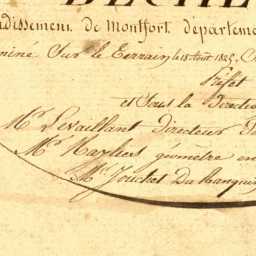 dissement de Montfort, départeme
miné Sur le Terrain le 18 Août 1825,
Préfet
et Sous la Direction
Mr. Levaillant Directeur
Mr. géomètre en
Mr. Jouchet